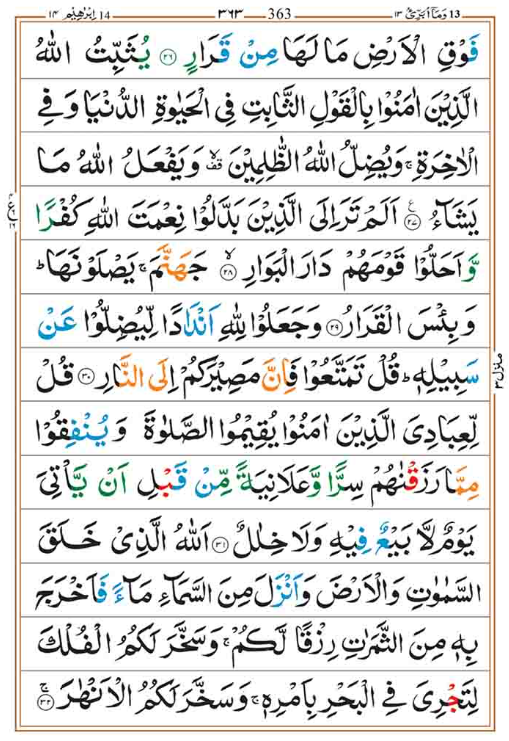 ابرٰهیم 14 ١٤ ٣٦٣ 363 13 وَمَآ اُبَرِّئُ ١٣
فَوْقِ الْاَرْضِ مَا لَهَا مِنْ قَرَارٍ ﴿٢٦﴾ یُثَبِّتُ اللّٰهُ
الَّذِیْنَ اٰمَنُوْا بِالْقَوْلِ الثَّابِتِ فِی الْحَیٰوةِ الدُّنْیَا وَ فِی
الْاٰخِرَةِ ۚ وَ یُضِلُّ اللّٰهُ الظّٰلِمِیْنَ ۙ قف وَ یَفْعَلُ اللّٰهُ مَا
یَشَآءُ ﴿٢٧﴾ ع اَلَمْ تَرَ اِلَی الَّذِیْنَ بَدَّلُوْا نِعْمَتَ اللّٰهِ كُفْرًا
وَّ اَحَلُّوْا قَوْمَهُمْ دَارَ الْبَوَارِ ﴿٢٨﴾ ۙ جَهَنَّمَ ۚ یَصْلَوْنَهَا ؕ
وَ بِئْسَ الْقَرَارُ ﴿٢٩﴾ وَ جَعَلُوْا لِلّٰهِ اَنْدَادًا لِّیُضِلُّوْا عَنْ
سَبِیْلِهٖ ؕ قُلْ تَمَتَّعُوْا فَاِنَّ مَصِیْرَكُمْ اِلَی النَّارِ ﴿٣٠﴾ قُلْ
لِّعِبَادِیَ الَّذِیْنَ اٰمَنُوْا یُقِیْمُوا الصَّلٰوةَ وَ یُنْفِقُوْا
مِمَّا رَزَقْنٰهُمْ سِرًّا وَّ عَلَانِیَةً مِّنْ قَبْلِ اَنْ یَّاْتِیَ
یَوْمٌ لَّا بَیْعٌ فِیْهِ وَ لَا خِلٰلٌ ﴿٣١﴾ اَللّٰهُ الَّذِیْ خَلَقَ
السَّمٰوٰتِ وَ الْاَرْضَ وَ اَنْزَلَ مِنَ السَّمَآءِ مَآءً فَاَخْرَجَ
بِهٖ مِنَ الثَّمَرٰتِ رِزْقًا لَّكُمْ ۚ وَ سَخَّرَ لَكُمُ الْفُلْكَ
لِتَجْرِیَ فِی الْبَحْرِ بِاَمْرِهٖ ۚ وَ سَخَّرَ لَكُمُ الْاَنْهٰرَ ﴿٣٢﴾ ۚ
منزل ٣